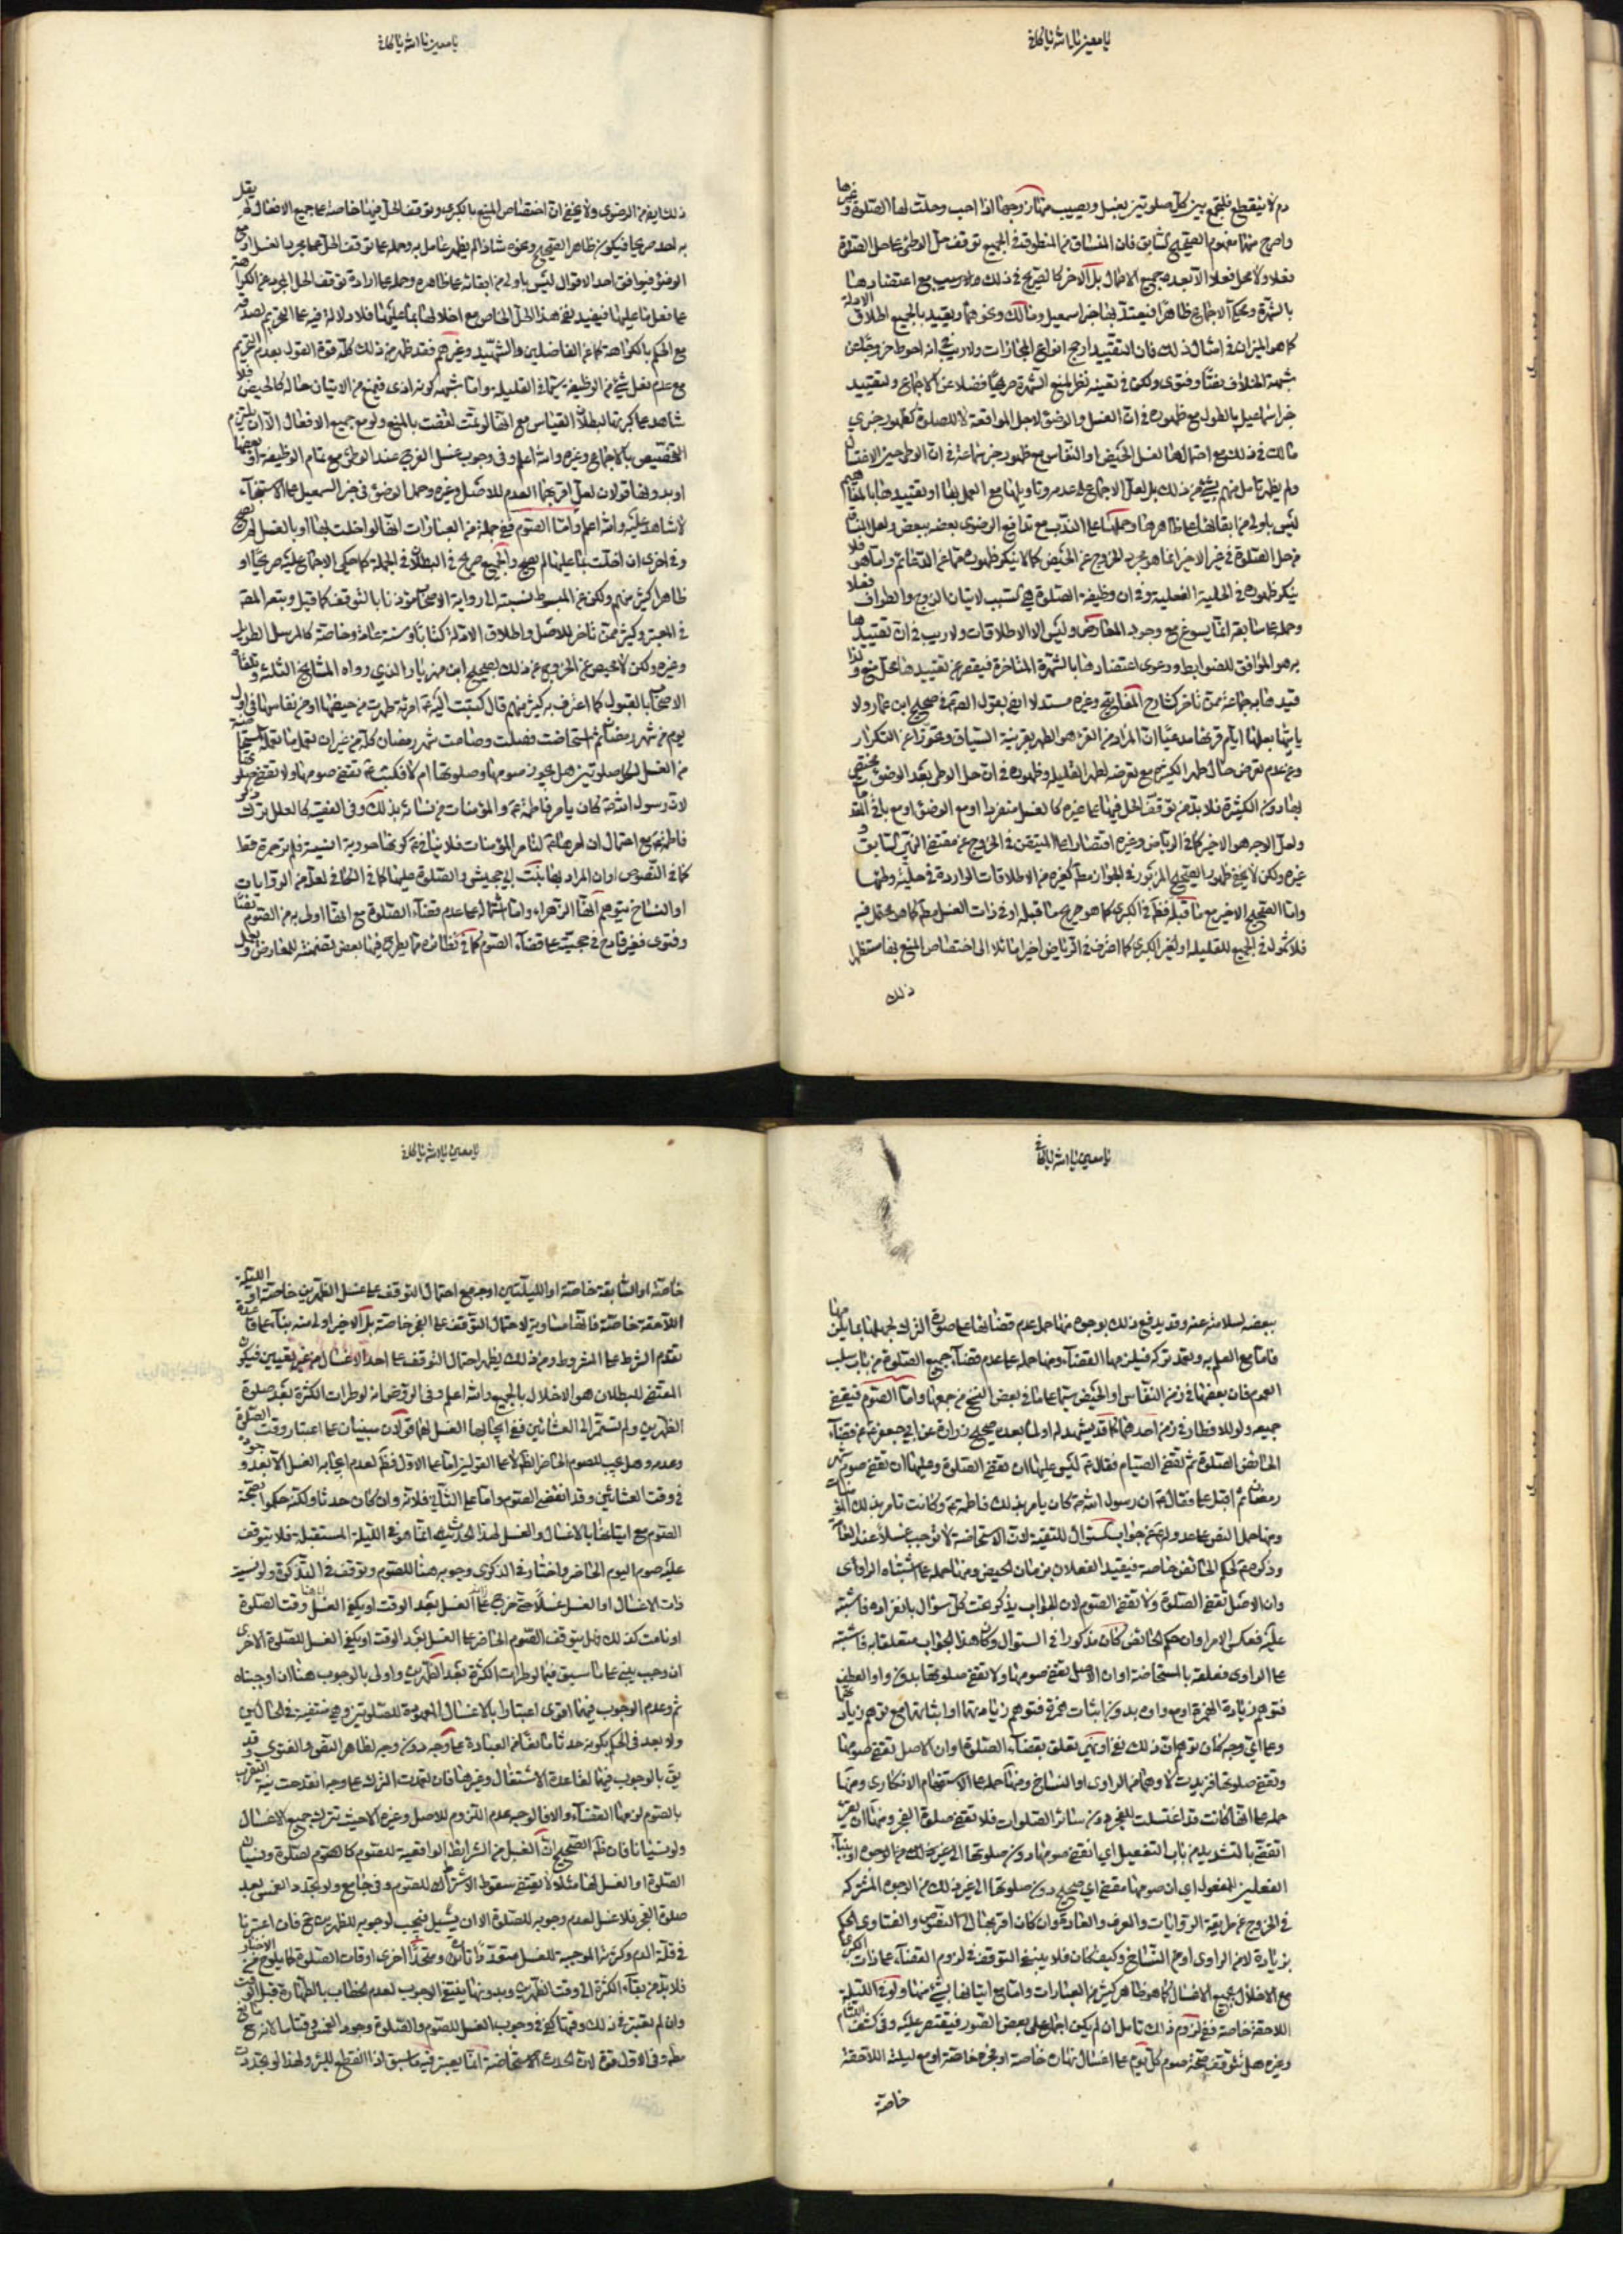 يا معين يا الله يا كافي
دم لا ينقطع فلتجمع بين كل صلوتين بغسل ويصيب منها زوجها اذا احب وحلت لها الصلوة وغيرها
واصرح منها مفهوم الصحيح السابق فان المنساق من المنطوق في الجميع توقف حل الوطي على حل الصلوة
فعلا ولا تحل فعلا الا بعد جميع الافعال بل الاخر كالصريح في ذلك ولا ريب مع اعتضادها
بالشهرة ومحكي الاجماع ظاهرا فيعتد بها خبر اسمعيل ومالك ونحوهما ويقيد بالجميع اطلاق الادلة
كما هو الميزان في امثال ذلك فان التقييد ارجح انواع المجازات ولا ريب في انه احوط خروجا عن
شبهة الخلاف نصا وفتوى ولكن في تعينه نظر لمنع الشهرة صريحا فضلا عن الاجماع ولتقييد
خبر اسماعيل بالطول مع ظهوره في ان الغسل والوضوء لاجل المواقعة لا للصلوة كظهور خبري
مالك في ذلك مع احتمالهما لغسل الحيض او النفاس مع ظهور خبر سماعة في ان الوطي حين الاغتسال
ولم يظهر عامل منهم بشيء من ذلك بل لعل الاجماع على عدمه وتاويلها مع العمل بها او تقييدها بالمفاهيم
ليس باولى من ابقائها على ظاهرها وحملها على الندب مع تدافع الرضوي بعضه ببعض ولعل البناء
من حل الصلوة في غير الاخير انما هو مجرد الخروج عن الحيض كما لا ينكر ظهوره مما عن الدعائم واما هو فلا
ينكر ظهوره في الحلية الفعلية وفي ان وظيفة الصلوة هي السبب لاتيان الزوج والطواف فعلا
وحمله على سابقه انما يسوغ مع وجود المعارض وليس الا الاطلاقات ولا ريب في ان تقييدها
به هو الموافق للضوابط ودعوى اعتضادها بالشهرة المتاخرة فيقصر عن تقييدها محل منع ولذا
قيدها به جماعة ممن تاخر كشارح المفاتيح وغيره مستدلا ايضا بقوله في صحيح ابن عمار ولا
ياتيها بعلها ايام قرئها مدعيا ان المراد من القرء هو الطهر بقرينة السياق وتحرزا عن التكرار
وعن عدم تعرض حال طهر الكبرى مع تعرضه لطهر القليلة وظهوره في ان حل الوطي بعد الوضوء مختص
بما دون الكثيرة فلا بد من توقف الحل فيها على غيره كالغسل منفردا او مع الوضوء او مع باقي ما تقدم
ولعل الاوجه هو الاخير كما في الرياض وغيره اقتصارا على المتيقن في الخروج عن مقتضى النهي السابق و
غيره ولكن لا يخفى ظهور الصحيح المزبور في الجواز مطلقا كغيره من الاطلاقات الواردة في حلية وطئها
واما الصحيح الاخير مع ما قبله فظاهر في الكبرى كما هو صريح ما قبله او في ذات الغسل مطلقا كما هو محتمل فيه
فلا شمول في الجميع للقليلة او لغير الكبرى كما اعترف في الرياض اخيرا مائلا الى اختصاص المنع بها مستظهرا
ذلك
يا معين يا الله يا كافي
ذلك ايضا من الرضوي ولا يخفى ان اختصاص المنع بالكبرى وتوقف الحل فيها خاصة على جميع الافعال لم يقل
به احد صريحا فيكون ظاهر الصحيح ونحوه شاذا لم يظهر عامل به وحمله على توقف الحل على مجرد الغسل او مع
الوضوء فيوافق احد الاقوال ليس باولى من ابقائه على ظاهره وحمله على ارادة توقف الحل المجرد عن الكراهة
على فعل ما عليها فيفيد نفي هذا الحل الخاص مع اخلالها بما عليها فلا دلالة فيه على التحريم لصدقه
مع الحكم بالكراهة كما عن الفاضلين والشهيد وغيرهم فقد ظهر من ذلك كله قوة القول بعدم التحريم
مع عدم فعل شيء من الوظيفة سيما في القليلة واما شبهة كونه اذى فيمنع من الاتيان حاله كالحيض فلا
شاهد على كبريتها لبطلان القياس مع انها لو تمت لقضت بالمنع ولو مع جميع الافعال الا ان يلتزم
التخصيص بالاجماع وغيره والله اعلم وفي وجوب غسل الفرج عند الوطي مع تمام الوظيفة او بعضها
او بدونها قولان لعل اقربهما العدم للاصل وغيره وحمل الوضوء في خبر اسمعيل على الاستنجاء
لا شاهد عليه والله اعلم واما الصوم ففي جملة من العبارات انها لو اخلت بها او بالغسل لم يصح
وفي اخرى ان اخلت بما عليها لم يصح والجميع صريح في البطلان في الجملة كما حكي الاجماع عليه صريحا او
ظاهرا كثير منهم ولكن عن المبسوط نسبته الى رواية الاصحاب مؤذنا بالتوقف كما قيل وتبعه المحقق
في المعتبر وكثير ممن تاخر للاصل واطلاق الادلة كتابا وسنة عامة وخاصة كالمرسل الطويل
وغيره ولكن لا محيص عن الخروج عن ذلك بصحيح ابن مهزيار الذي رواه المشايخ الثلثة وتلقاه
الاصحاب بالقبول كما اعترف به كثير منهم قال كتبت اليه امرئة طهرت من حيضها او من نفاسها في اول
يوم من شهر رمضان ثم استحاضت فصلت وصامت شهر رمضان كله من غير ان تعمل ما تعمله المستحاضة
من الغسل لكل صلوتين هل يجوز صومها وصلوتها ام لا فكتب تقضي صومها ولا تقضي صلوتها
لان رسول الله كان يامر فاطمة والمؤمنات من نسائه بذلك وفي الفقيه كالعلل بترك ذكر
فاطمة مع احتمال ان امرها لتامر المؤمنات فلا ينافي كونها حورية انسية فلم تر حمرة قط
كما في النصوص او ان المراد بها بنت ابي حبيش والصلوة عليها كما في الكافي لعله من الروايات
او النساخ بتوهم انها الزهراء واما اشتماله على عدم قضاء الصلوة مع انها اولى به من الصوم نصا
وفتوى فغير قادح في حجيته على قضاء الصوم كما في نظائره مما يطرح فيها بعض تضمنه للمعارض ويعمل
يا معين يا الله يا كافي
ببعضه لسلامته عنه وقد يدفع ذلك بوجوه منها حمل عدم قضائها على صورة الترك لجهلها بما يلزمها
فاما مع العلم به وتعمد تركه فيلزمها القضاء ومنها حمله على عدم قضاء جميع الصلوة من باب سلب
العموم فان بعضها في زمن النفاس او الحيض سيما على ما في بعض النسخ من جمعها واما الصوم فيقضي
جميعه ولو للافطار في زمن احدهما كما قد يشهد له او لما بعده صحيح زرارة عن ابي جعفر عن قضاء
الحائض الصلوة ثم تقضي الصيام فقال ليس عليها ان تقضي الصلوة وعليها ان تقضي صوم شهر
رمضان ثم اقبل علي فقال ان رسول الله كان يامر بذلك فاطمة وكانت تامر بذلك المؤمنات
ومنها حمل النص على عدوله عن جواب السؤال للتقية لان الاستحاضة لا توجب غسلا عند العامة
وذكره حكم الحائض خاصة فيقيد الفعلان بزمان الحيض ومنها حمله على اشتباه الراوي
وان الاصل تقضي الصلوة ولا تقضي الصوم لان الجواب يذكر تحت كل سؤال بانفراده فاشتبه
عليه فعكس الامر او ان حكم الحائض كان مذكورا في السؤال وكان هذا الجواب متعلقا به فاشتبه
على الراوي فعلقه بالمستحاضة او ان الاصل تقضي صومها ولا تقضي صلوتها بدون واو العطف
فتوهم زيادة الهمزة او مع واو بدون اثبات همزة فتوهم زيادتها او اثباتها مع توهم زيادتها
وعلى اي وجه كان توهم ان ذلك نفي او نهي تعلق بقضاء الصلوة او ان الاصل تقضي صومها
وتقضي صلوتها فزيدت لا وهما من الراوي او النساخ ومنها حمله على الاستفهام الانكاري ومنها
حمله على انها كانت قد اغتسلت للفجر دون سائر الصلوات فلا تقضي صلوة الفجر ومنها ان يقرء
تقضي بالتشديد من باب التفعيل اي انقضى صومها دون صلوتها الى غير ذلك من الوجوه او ببناء
الفعلين للمفعول اي ان صومها مقضي اي صحيح دون صلوتها الى غير ذلك من الوجوه المشتركة
في الخروج عن طريقة الروايات والعرف والعادة وان كان اقربها الى النصوص والفتاوى الحكم
بزيادة لا من الراوي او من النساخ وكيف كان فلا ينبغي التوقف في لزوم القضاء على ذات الكبرى
مع الاخلال بجميع الاغسال كما هو ظاهر كثير من العبارات واما مع اتيانها بشيء منها ولو في الليلة
اللاحقة خاصة ففي لزوم ذلك تامل ان لم يكن اجماع على بعض الصور فيقتصر عليه وفي كشف اللثام
وغيره هل تتوقف صحة صوم كل يوم على اغسال نهاره خاصة او فجره خاصة او مع ليلته اللاحقة
خاصة
يا معين يا الله يا كافي
خاصة او السابقة خاصة او الليلتين اوجه مع احتمال التوقف على غسل الظهرين خاصة او الليلة
اللاحقة خاصة فانها مساوية لاحتمال التوقف على الفجر خاصة بل الاخير اولى منه بناء على قاعدة
تقدم الشرط على المشروط ومن ذلك يظهر احتمال التوقف على احد الاغسال من غير تعيين فيكون
المقتضي للبطلان هو الاخلال بالجميع والله اعلم وفي الروض انه لو طرات الكثرة بعد صلوة
الظهرين ولم تستمر الى العشائين ففي ايجابها الغسل لهما قولان مبنيان على اعتبار وقت الصلوة
وعدمه وهل يجب للصوم الحاضر الظاهر لا على القولين اما على الاول فظاهر لعدم ايجابه الغسل الا بعد وجوده
في وقت العشائين وقد انقضى الصوم واما على الثاني فلانه وان كان حدثا ولكنه حكموا بصحة
الصوم مع اتيانها بالاغسال والغسل لهذا الحدث انما هو في الليلة المستقبلة فلا يتوقف
عليه صوم اليوم الحاضر واختار في الذكرى وجوبه هنا للصوم وتوقف في التذكرة ولو نسيت
ذات الاغسال او الغسل غسلا حتى خرج
او نامت كذلك فهل يتوقف الصوم الحاضر على الغسل بعد الوقت او يكفي الغسل للصلوة الاخرى
ان وجب يبنى على ما سبق فيما لو طرات الكثرة بعد الظهرين واولى بالوجوب هنا ان اوجبناه
ثم وعدم الوجوب فيهما اقوى اعتبارا بالاغسال المعهودة للصلوتين وهي منتفية في الحالين
ولا بعد في الحكم بكونه حدثا مانعا من العبادة على وجه دون وجه لظاهر النص والفتوى وقد
يق بالوجوب فيهما لقاعدة الاشتغال وغيرها فان تعمدت الترك على وجه انقدحت نية التقرب
بالصوم لزمها القضاء والا فالوجه عدم اللزوم للاصل وغيره الا حيث تترك جميع الاغسال
ولو نسيانا فان ظاهر الصحيح ان الغسل من الشرائط الواقعية للصوم كما هو للصلوة ونسيان
الصلوة او الغسل لها مثلا لا يقتضي سقوط الاشتراط للصوم وفي جامع ولو تجدد الغمس بعد
صلوة الفجر فلا غسل لعدم وجوبه للصلوة الا ان يسيل فيجب لوجوبه للظهرين ح فان اعتبرنا
في قلة الدم وكثرته الموجبة للغسل
فلا بد من بقاء الكثرة الى وقت الظهرين وبدونها ينتفي الوجوب لعدم الخطاب بالطهارة قبل الوقت
وان لم نعتبر في ذلك وقتا كفى في وجوب الغسل للصوم والصلوة وجود الغمس وقتا ما لانه مانع